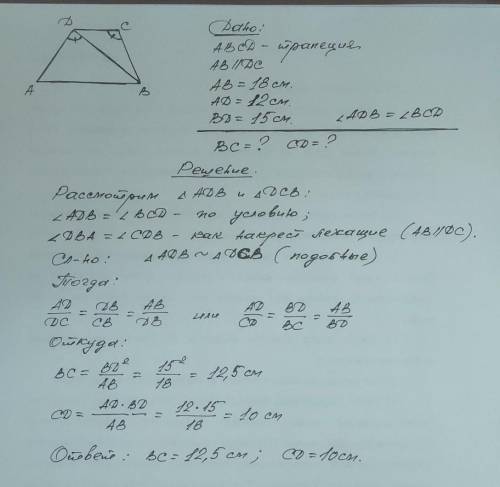 D C
A B
Дано:
ABCD - трапеция
AB∥DC
AB = 18 см.
AD = 12 см.
BD = 15 см. ∠ADB = ∠BCD
BC = ? CD = ?
Решение.
Рассмотрим △ADB и △DCB:
∠ADB = ∠BCD - по условию;
∠DBA = ∠CDB - как накрест лежащие (AB∥DC).
Сл-но: △ADB ~ △DCB (подобные)
Тогда:
AD/DC = DB/CB = AB/DB или AD/CD = BD/BC = AB/BD
Откуда:
BC = BD²/AB = 15²/18 = 12,5 см
CD = AD·BD/AB = 12·15/18 = 10 см
Ответ: BC = 12,5 см; CD = 10 см.